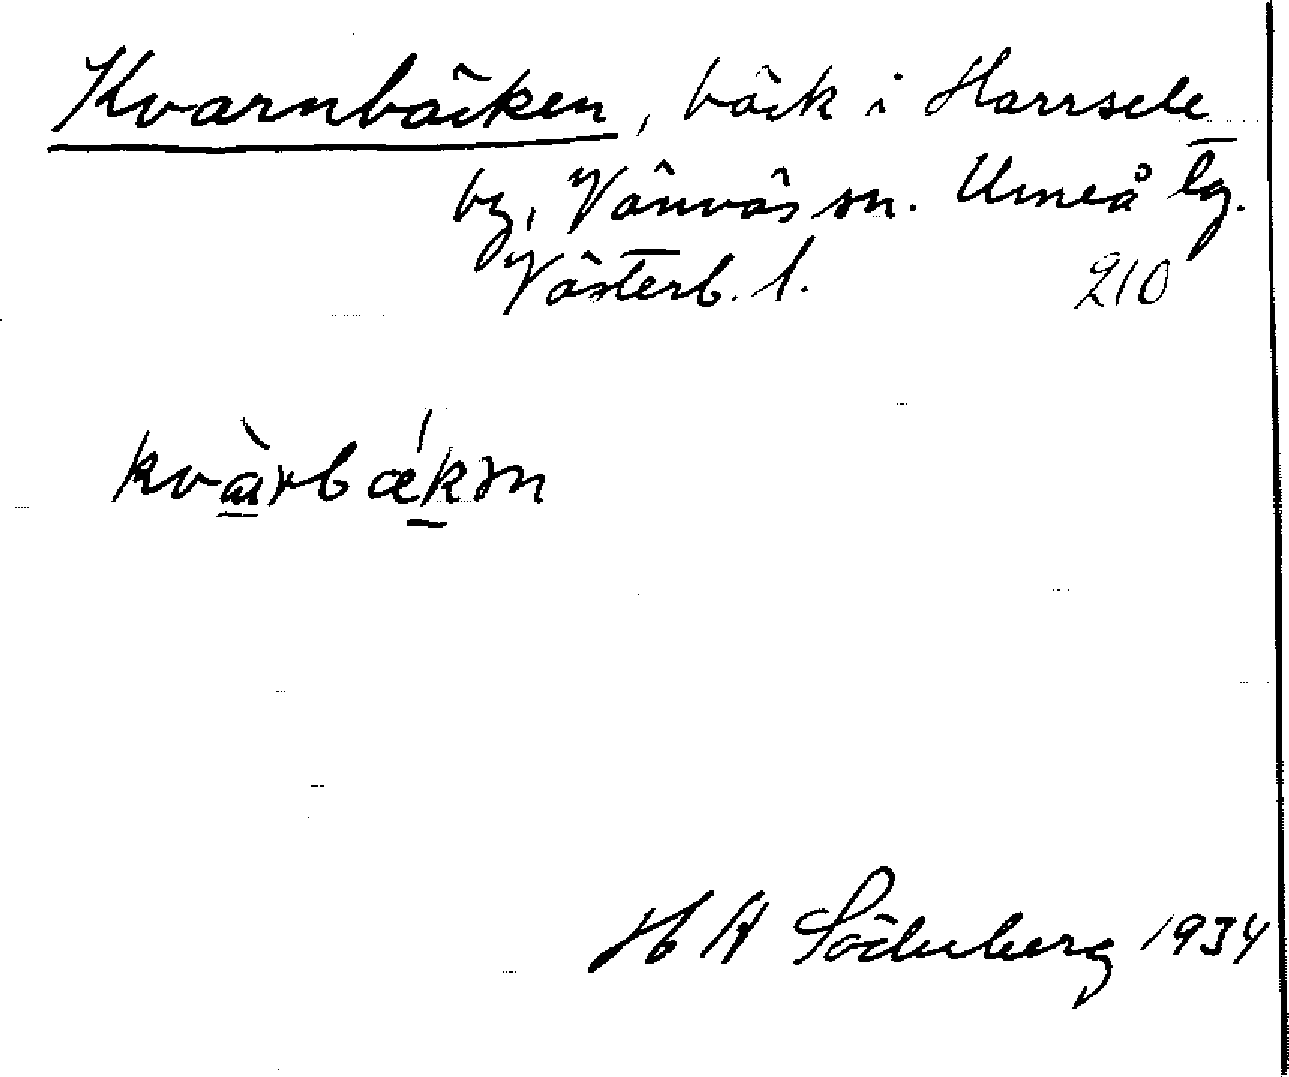 Kvarnbäcken, bäck i Harrsele
by, Vännäs sn. Umeå tg.
Västerb. l. 210
kvàrbǽkən
H A Söderberg 1934